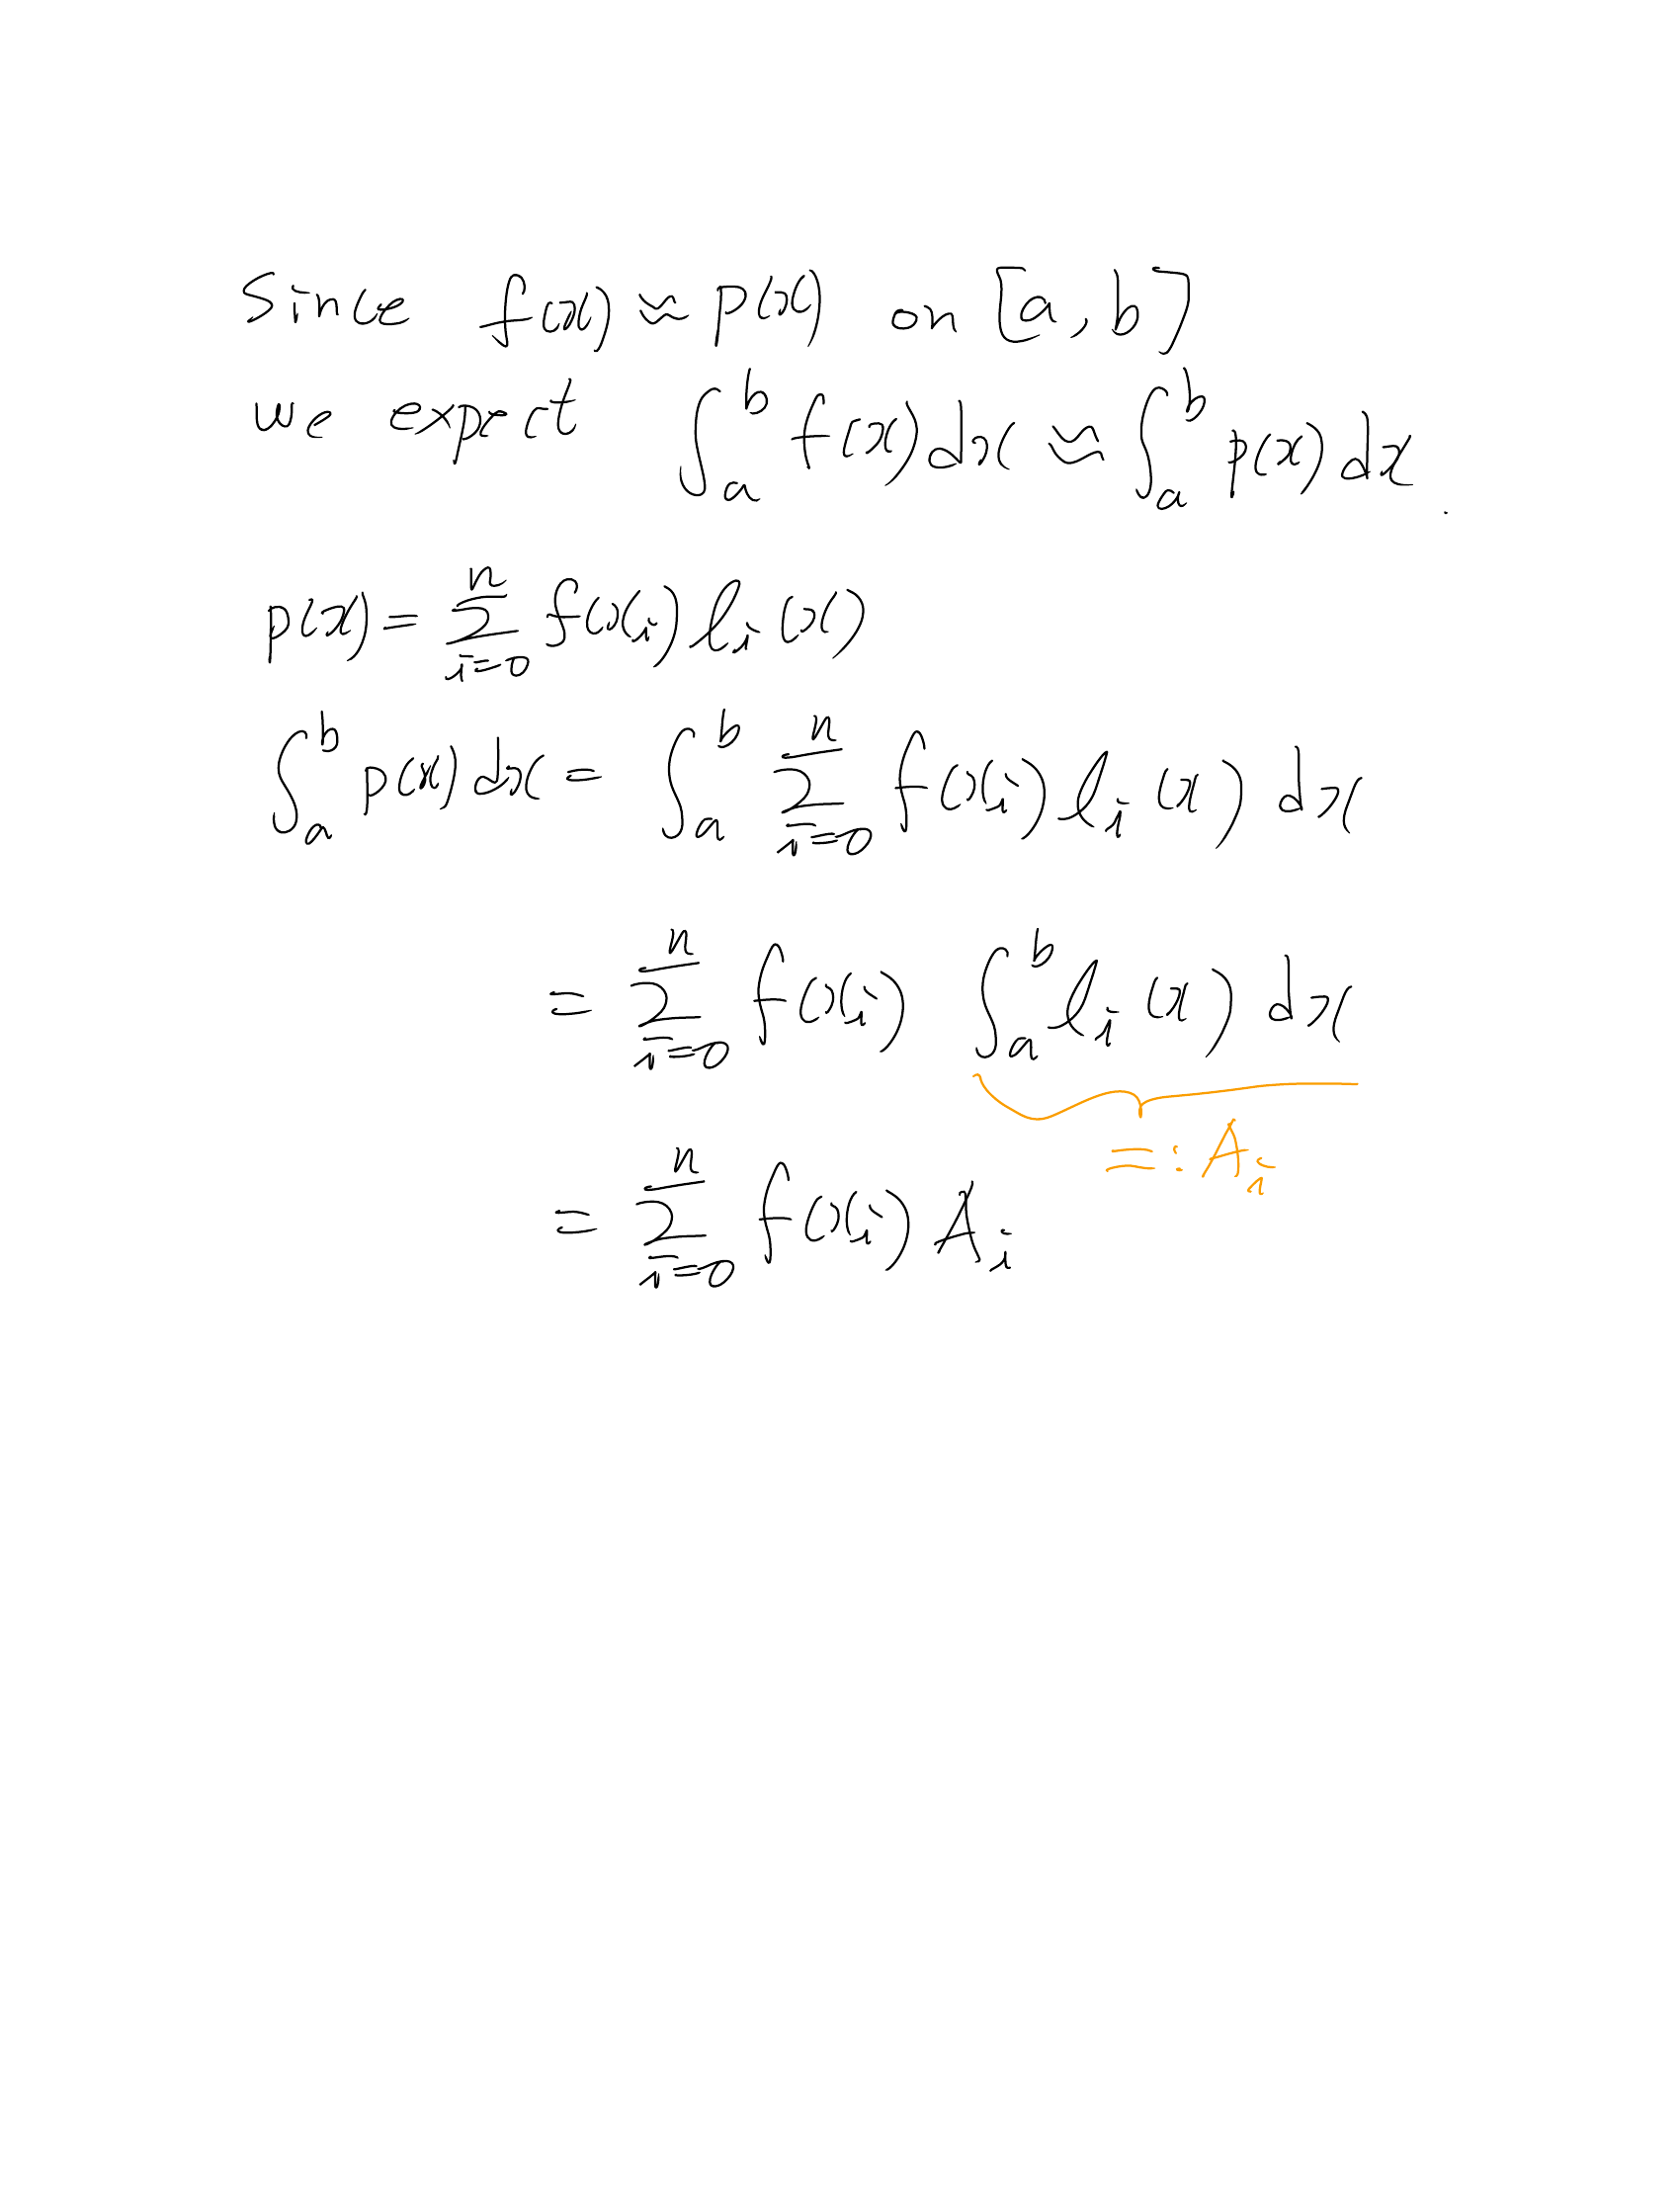 Since f(x) ≈ p(x) on [a, b]
we expect ∫_a^b f(x) dx ≈ ∫_a^b p(x) dx .
p(x) = ∑_{i=0}^n f(x_i) l_i(x)
∫_a^b p(x) dx = ∫_a^b ∑_{i=0}^n f(x_i) l_i(x) dx
= ∑_{i=0}^n f(x_i) ∫_a^b l_i(x) dx
=: A_i
= ∑_{i=0}^n f(x_i) A_i